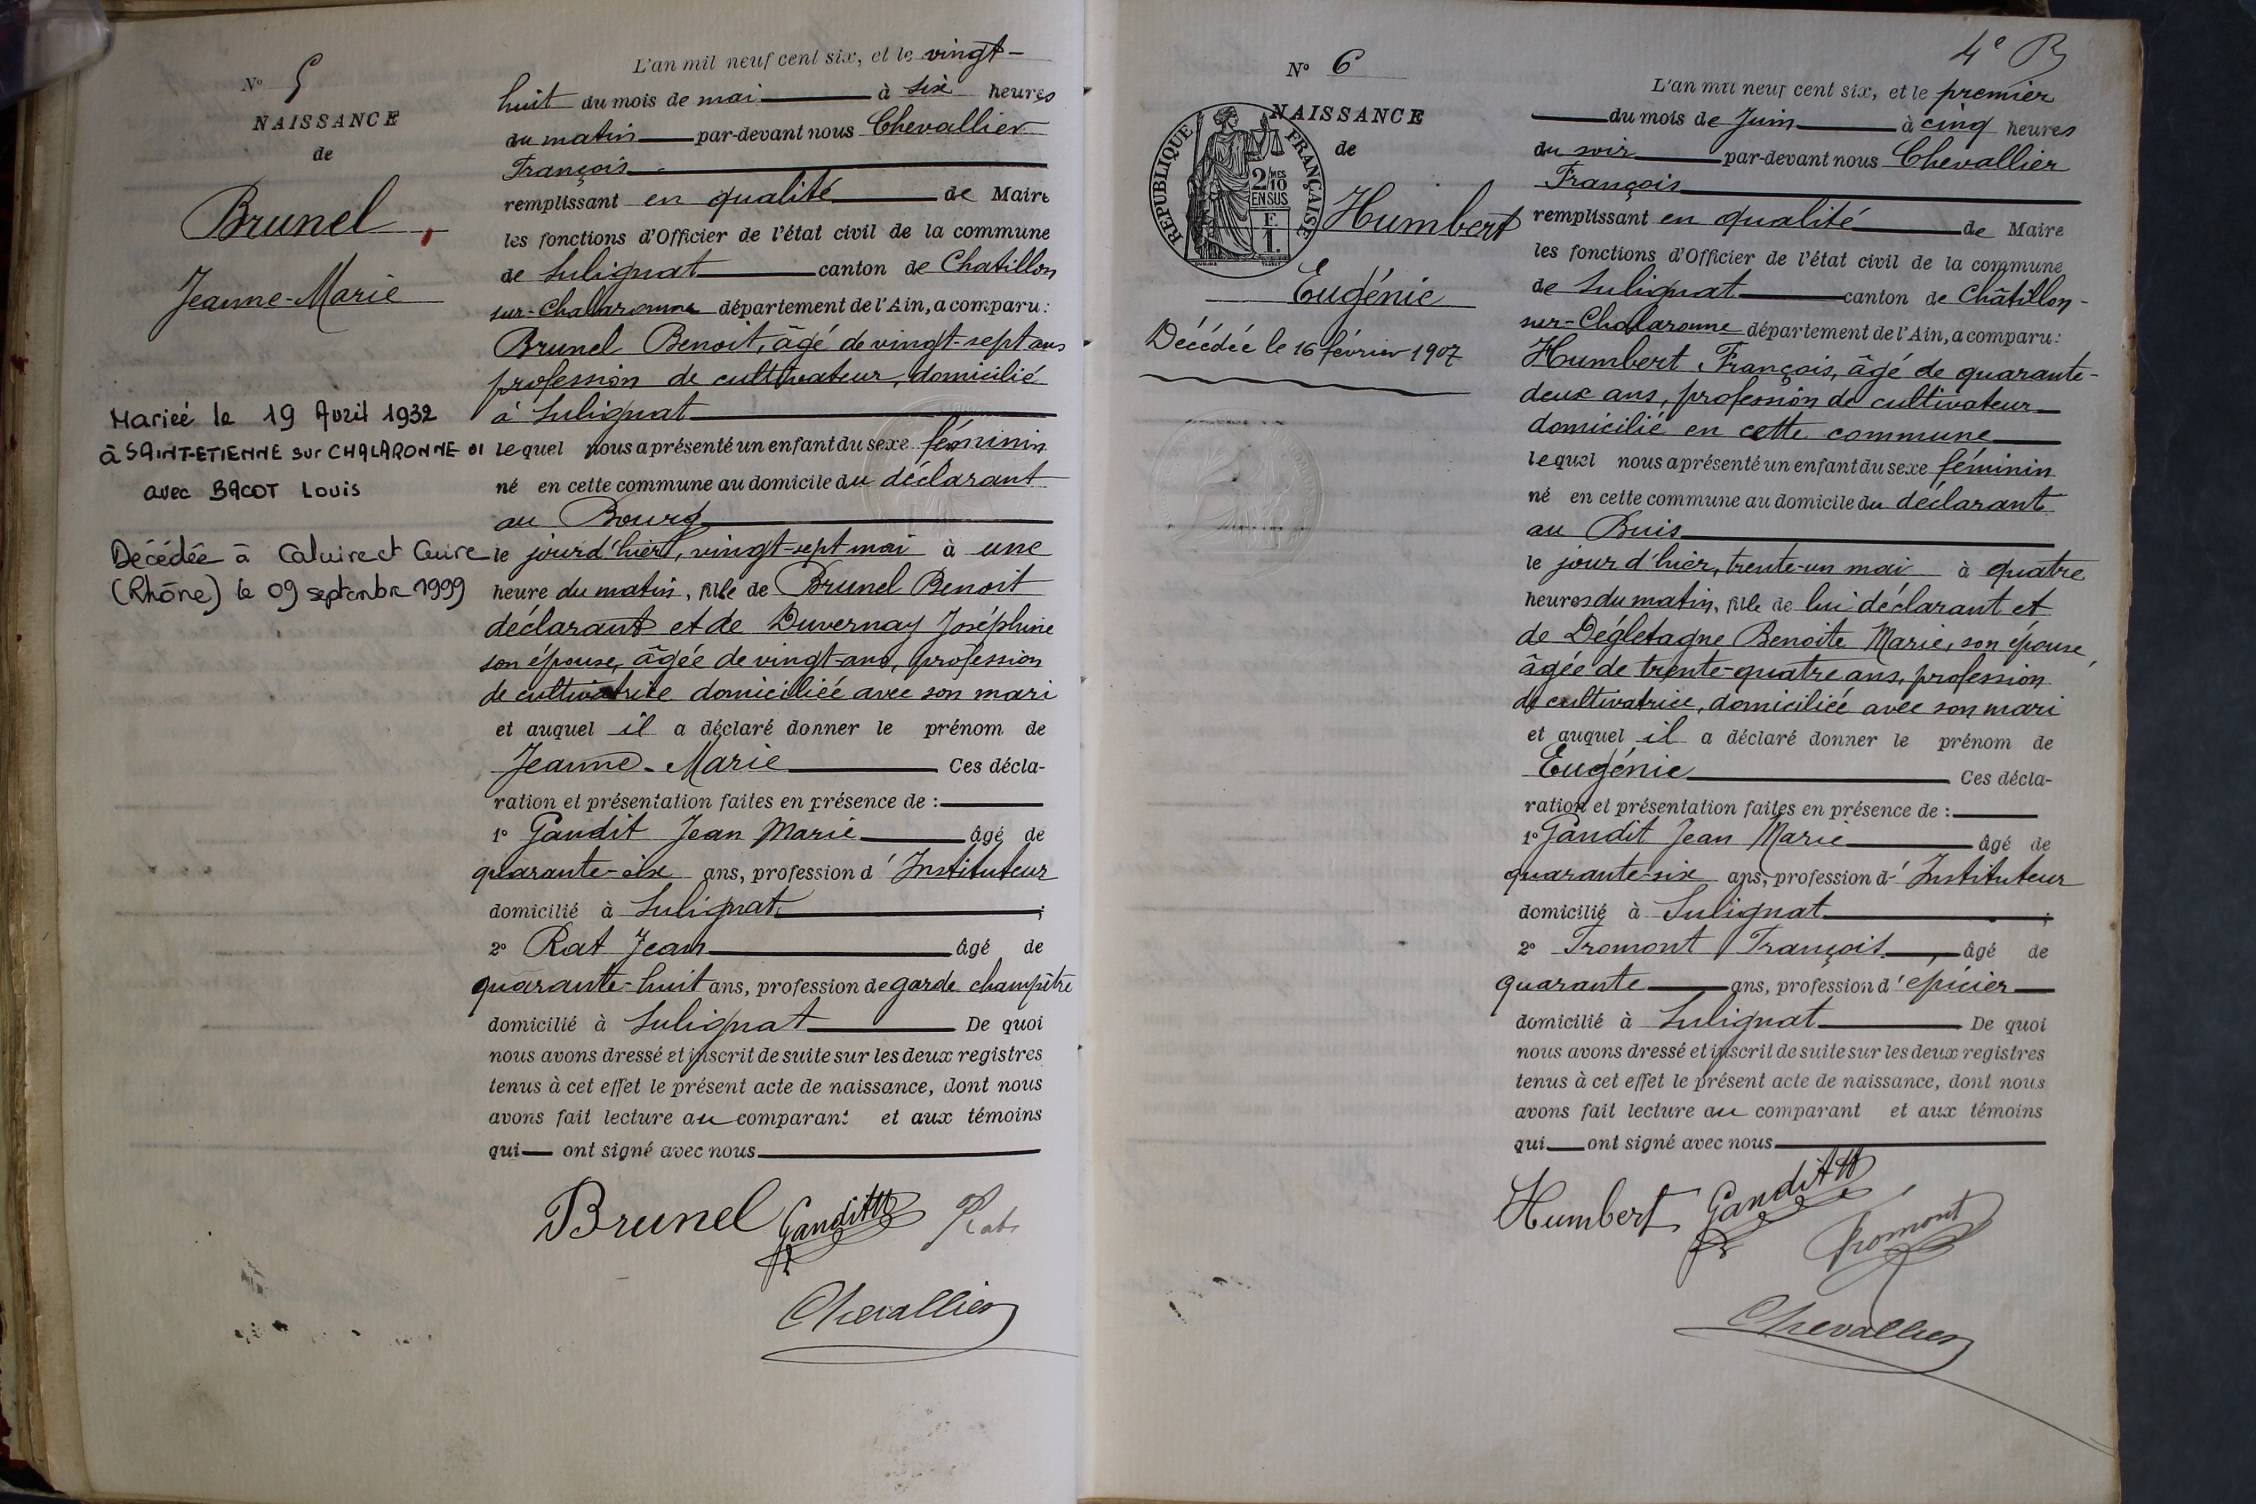 N° 5
NAISSANCE
de
Brunel
Jeanne-Marie
Mariée le 19 Avril 1932
à SAINT-ETIENNE sur CHALARONNE 01
avec BACOT Louis
Décédée à Caluire et Cuire
(Rhône) le 09 septembre 1999
L'an mil neuf cent six, et le vingt-
huit du mois de mai à six heures
du matin par-devant nous Chevallier
François
remplissant en qualité de Maire
les fonctions d'Officier de l'état civil de la commune
de Sulignat canton de Chatillon
sur-Chalaronne département de l'Ain, a comparu:
Brunel Benoit, âgé de vingt-sept ans
profession de cultivateur, domicilié
à Sulignat
lequel nous a présenté un enfant du sexe féminin
né en cette commune au domicile du déclarant
au Bourg
le jour d'hier, vingt-sept mai à une
heure du matin, fille de Brunel Benoit
déclarant et de Duvernay Joséphine
son épouse, âgée de vingt-ans, profession
de cultivatrice domiciliée avec son mari
et auquel il a déclaré donner le prénom de
Jeanne-Marie Ces décla-
ration et présentation faites en présence de :
1° Gandit Jean Marie âgé de
quarante-six ans, profession d'Instituteur
domicilié à Sulignat ;
2° Rat Jean âgé de
quarante-huit ans, profession de garde champêtre
domicilié à Sulignat De quoi
nous avons dressé et inscrit de suite sur les deux registres
tenus à cet effet le présent acte de naissance, dont nous
avons fait lecture au comparant et aux témoins
qui ont signé avec nous
Brunel Gandit Rat
Chevallier
4e B
N° 6
NAISSANCE
de
RÉPUBLIQUE FRANÇAISE
2/10 MES
EN SUS
F.
1.
Humbert
Eugénie
Décédée le 16 février 1907
L'an mil neuf cent six, et le premier
du mois de Juin à cinq heures
du soir par-devant nous Chevallier
François
remplissant en qualité de Maire
les fonctions d'Officier de l'état civil de la commune
de Sulignat canton de Châtillon-
sur-Chalaronne département de l'Ain, a comparu:
Humbert, François, âgé de quarante-
deux ans, profession de cultivateur
domicilié en cette commune
lequel nous a présenté un enfant du sexe féminin
né en cette commune au domicile du déclarant
au Buis
le jour d'hier, trente-un mai à quatre
heures du matin, fille de lui déclarant et
de Dégletagne Benoite Marie, son épouse,
âgée de trente-quatre ans, profession
de cultivatrice, domiciliée avec son mari
et auquel il a déclaré donner le prénom de
Eugénie Ces décla-
ration et présentation faites en présence de :
1° Gandit Jean Marie âgé de
quarante-six ans, profession d'Instituteur
domicilié à Sulignat ;
2° Fromont François, âgé de
quarante ans, profession d'épicier
domicilié à Sulignat De quoi
nous avons dressé et inscrit de suite sur les deux registres
tenus à cet effet le présent acte de naissance, dont nous
avons fait lecture au comparant et aux témoins
qui ont signé avec nous
Humbert Gandit
Fromont
Chevallier